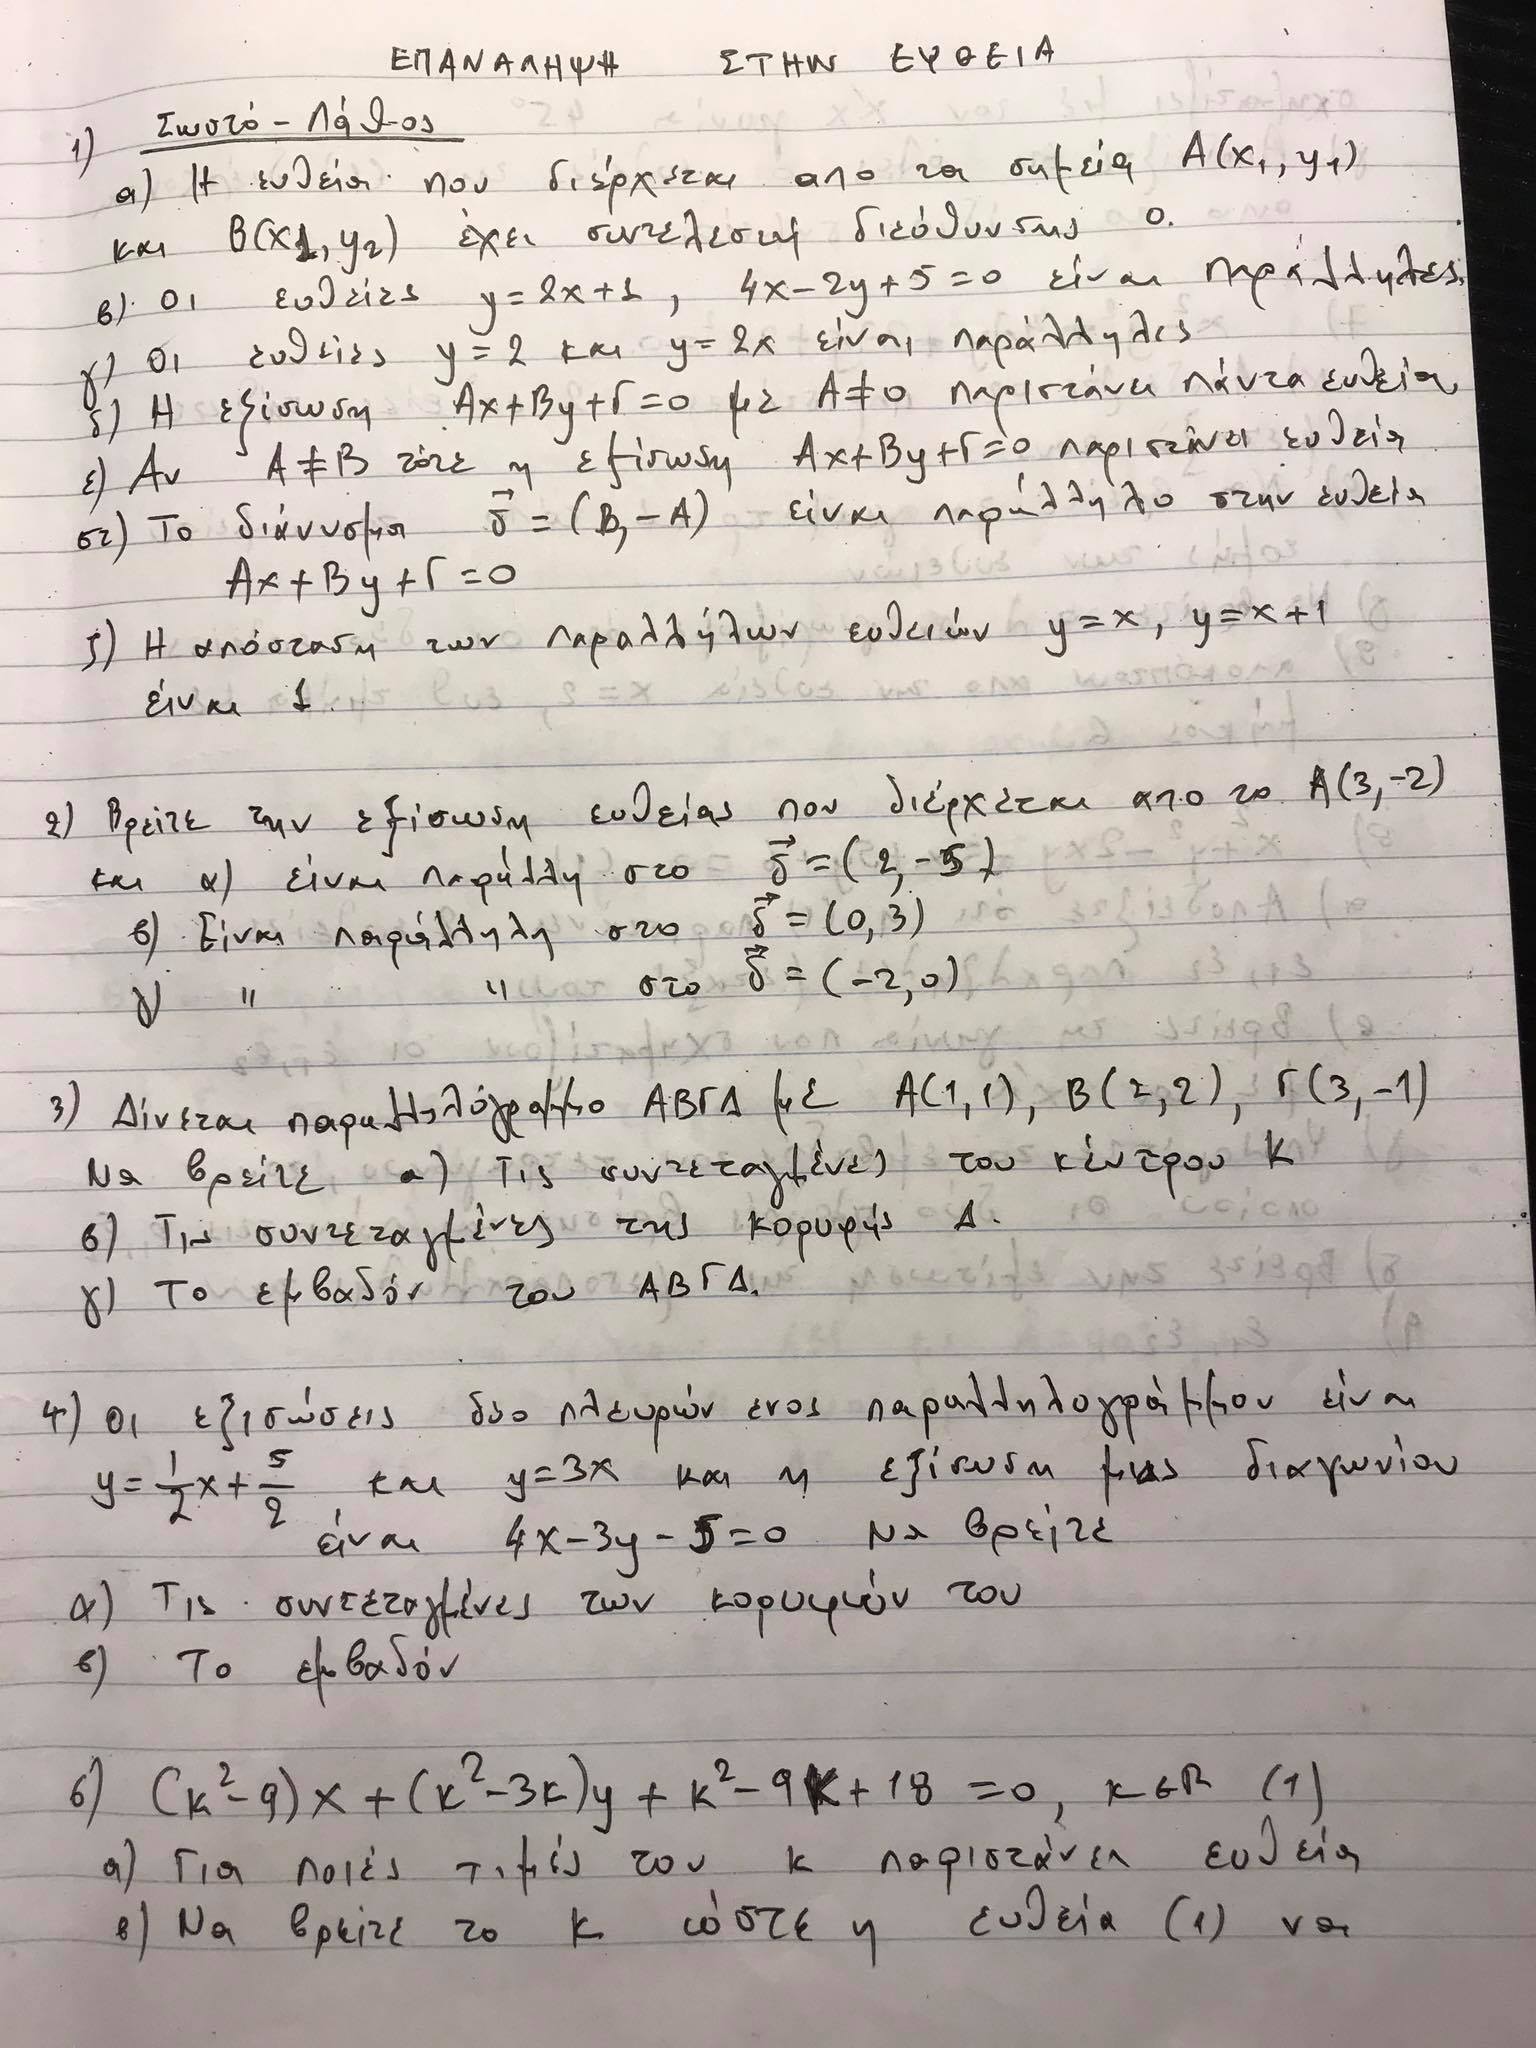 ΕΠΑΝΑΛΗΨΗ ΣΤΗΝ ΕΥΘΕΙΑ
1) Σωστό - Λάθος
α) Η ευθεία που διέρχεται απο τα σημεία Α(x₁, y₁)
και Β(x1, y₂) έχει συντελεστή διεύθυνσης 0.
β) Οι ευθείες y=2x+1, 4x-2y+5=0 είναι παράλληλες.
γ) Οι ευθείες y=2 και y=2x είναι παράλληλες
δ) Η εξίσωση Αx+Βy+Γ=0 με Α≠0 παριστάνει πάντα ευθεία.
ε) Αν Α≠Β τότε η εξίσωση Αx+Βy+Γ=0 παριστάνει ευθεία
στ) Το διάνυσμα δ⃗=(Β,-Α) είναι παράλληλο στην ευθεία
Αx+Βy+Γ=0
ζ) Η απόσταση των παραλλήλων ευθειών y=x, y=x+1
είναι 1.
2) Βρείτε την εξίσωση ευθείας που διέρχεται απο το Α(3,-2)
και α) είναι παράλλη στο δ⃗=(2,-5)
β) Είναι παράλληλη στο δ⃗=(0,3)
γ) " " στο δ⃗=(-2,0)
3) Δίνεται παραλληλόγραμμο ΑΒΓΔ με Α(1,1), Β(2,2), Γ(3,-1)
Να βρείτε α) Τις συντεταγμένες του κέντρου Κ
β) Τις συντεταγμένες της κορυφής Δ.
γ) Το εμβαδόν του ΑΒΓΔ.
4) Οι εξισώσεις δυο πλευρών ενος παραλληλογράμμου είναι
y=1/2x+5/2 και y=3x και η εξίσωση μιας διαγωνίου
είναι 4x-3y-5=0 Να βρείτε
α) Τις συντεταγμένες των κορυφών του
β) Το εμβαδόν
6) (κ²-9)x+(κ²-3κ)y+κ²-9κ+18=0, κ∈R (1)
α) Για ποιές τιμές του κ παριστάνει ευθεία
β) Να βρείτε το κ ώστε η ευθεία (1) να